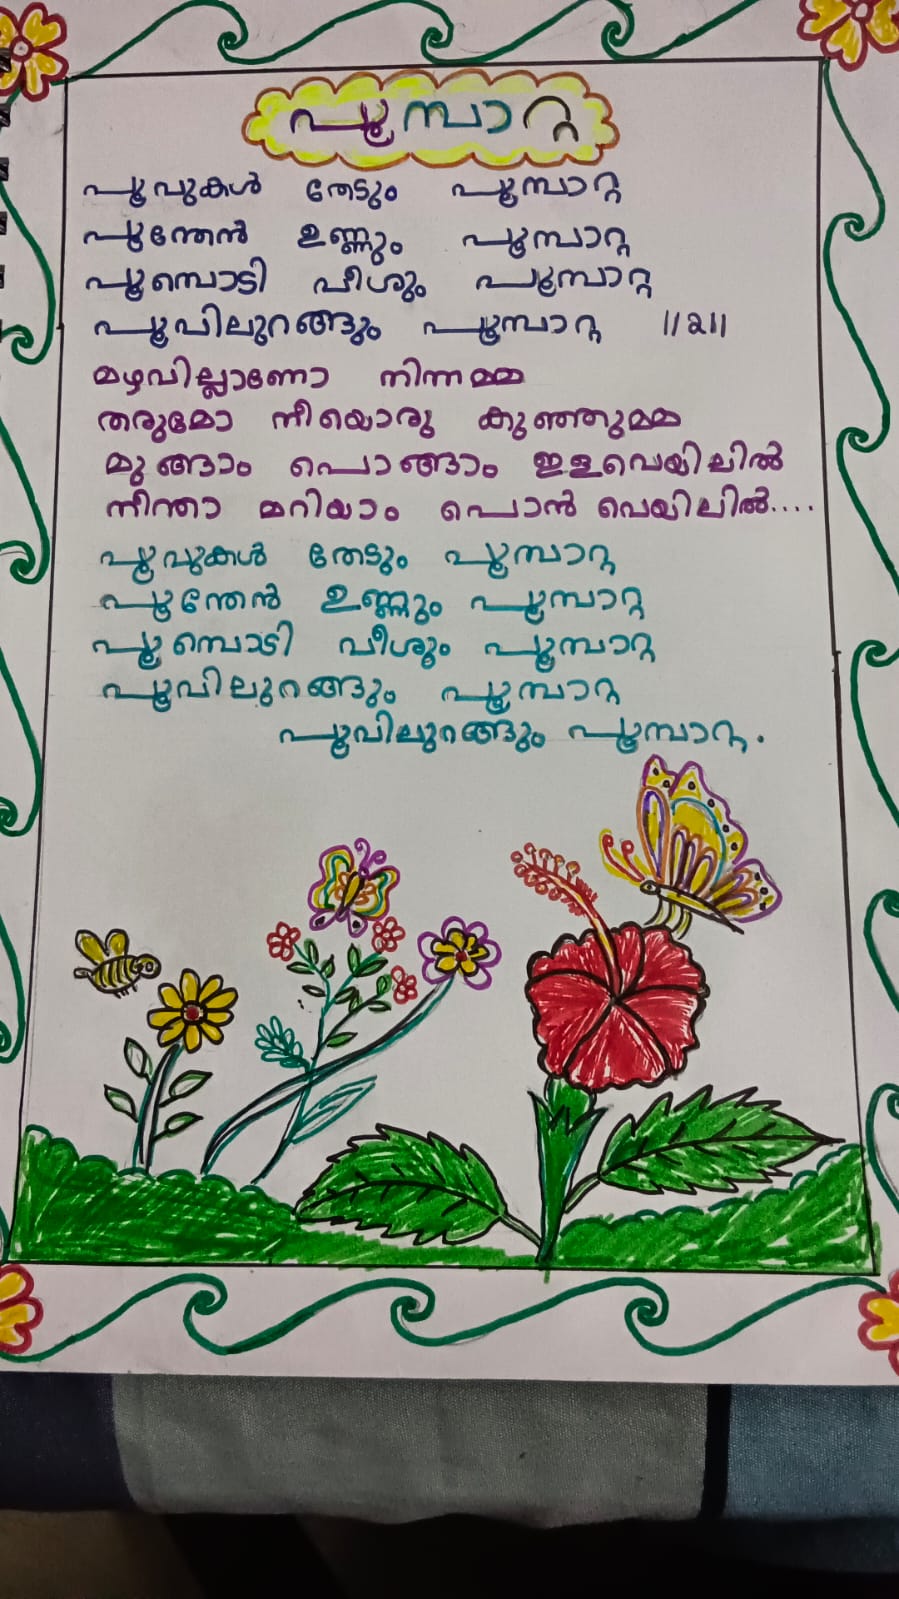 പൂമ്പാറ്റ
പൂവുകൾ തേടും പൂമ്പാറ്റ
പൂന്തേൻ ഉണ്ണും പൂമ്പാറ്റ
പൂമ്പൊടി വീശും പൂമ്പാറ്റ
പൂവിലുറങ്ങും പൂമ്പാറ്റ //2//
മഴവില്ലാണോ നിന്നമ്മ
തരുമോ നീയൊരു കുഞ്ഞുമ്മ
മുങ്ങാം പൊങ്ങാം ഇളവെയിലിൽ
നീന്താ മറിയാം പൊൻ വെയിലിൽ....
പൂവുകൾ തേടും പൂമ്പാറ്റ
പൂന്തേൻ ഉണ്ണും പൂമ്പാറ്റ
പൂമ്പൊടി വീശും പൂമ്പാറ്റ
പൂവിലുറങ്ങും പൂമ്പാറ്റ
പൂവിലുറങ്ങും പൂമ്പാറ്റ.